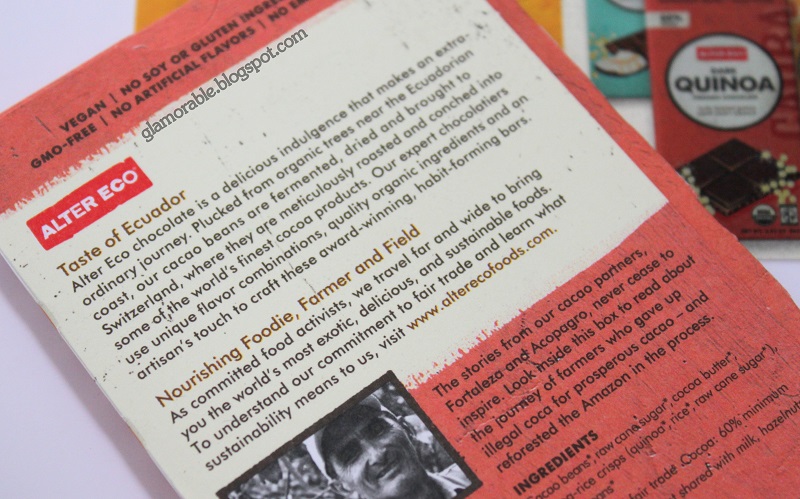 VEGAN | NO SOY OR GLUTEN INGRE
GMO-FREE | NO ARTIFICIAL FLAVORS | NO EM
glamorable.blogspot.com
ALTER ECO
Taste of Ecuador
Alter Eco chocolate is a delicious indulgence that makes an extra-
ordinary journey. Plucked from organic trees near the Ecuadorian
coast, our cacao beans are fermented, dried and brought to
Switzerland, where they are meticulously roasted and conched into
some of the world's finest cocoa products. Our expert chocolatiers
use unique flavor combinations, quality organic ingredients and an
artisan's touch to craft these award-winning, habit-forming bars.
Nourishing Foodie, Farmer and Field
As committed food activists, we travel far and wide to bring
you the world's most exotic, delicious, and sustainable foods.
To understand our commitment to fair trade and learn what
sustainability means to us, visit www.alterecofoods.com.
The stories from our cacao partners,
Fortaleza and Acopagro, never cease to
inspire. Look inside this box to read about
the journey of farmers who gave up
illegal coca for prosperous cacao – and
reforested the Amazon in the process.
INGREDIENTS
Cocoa beans*, raw cane sugar*, cocoa butter*,
rice crisps (quinoa*, rice*, raw cane sugar*),
fair trade. Cocoa: 60% minimum
shared with milk, hazelnut
DARK
QUINOA